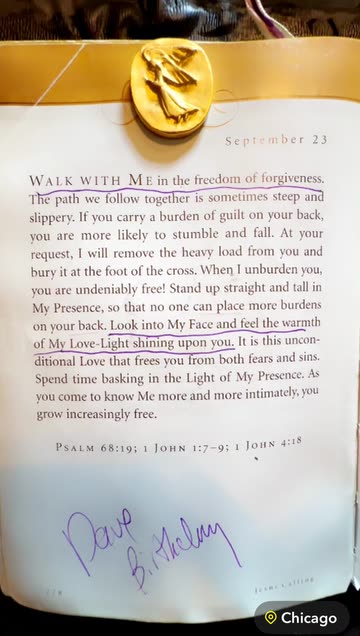 September 23
WALK WITH ME in the freedom of forgiveness.
The path we follow together is sometimes steep and
slippery. If you carry a burden of guilt on your back,
you are more likely to stumble and fall. At your
request, I will remove the heavy load from you and
bury it at the foot of the cross. When I unburden you,
you are undeniably free! Stand up straight and tall in
My Presence, so that no one can place more burdens
on your back. Look into My Face and feel the warmth
of My Love-Light shining upon you. It is this uncon-
ditional Love that frees you from both fears and sins.
Spend time basking in the Light of My Presence. As
you come to know Me more and more intimately, you
grow increasingly free.
PSALM 68:19; 1 JOHN 1:7–9; 1 JOHN 4:18
Dave
Birthday
Jesus Calling
Chicago